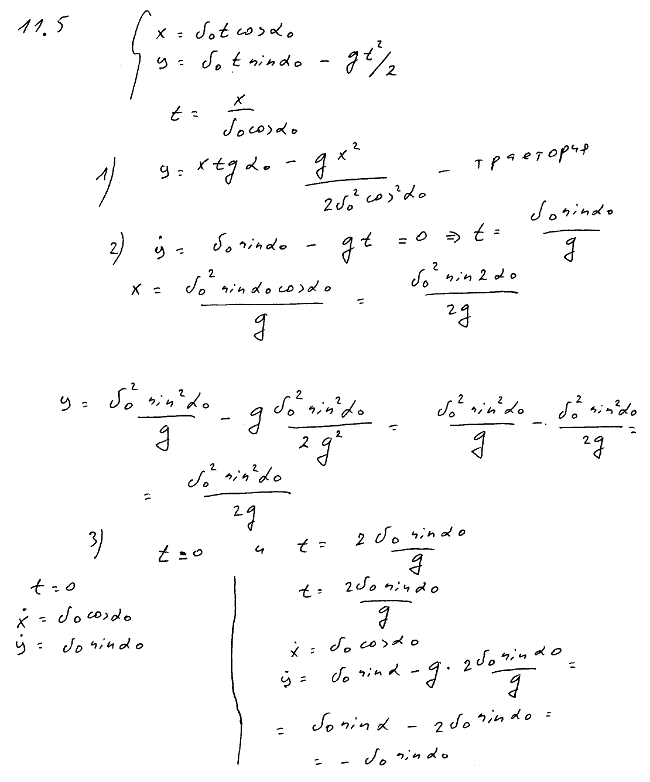 11.5
x = v₀t cosα₀
y = v₀t sinα₀ - gt²/2
t = x / (v₀cosα₀)
1) y = x tg α₀ - gx² / (2v₀² cos²α₀) - траектория
2) ẏ = v₀ sinα₀ - gt = 0 ⇒ t = v₀ sinα₀ / g
x = v₀² sinα₀cosα₀ / g = v₀² sin2α₀ / 2g
y = v₀² sin²α₀ / g - g v₀² sin²α₀ / 2g² = v₀² sin²α₀ / g - v₀² sin²α₀ / 2g =
= v₀² sin²α₀ / 2g
3) t = 0 и t = 2v₀ sinα₀ / g
t = 0
ẋ = v₀cosα₀
ẏ = v₀ sinα₀
t = 2v₀ sinα₀ / g
ẋ = v₀ cosα₀
ẏ = v₀ sinα - g · 2v₀ sinα₀ / g =
= v₀ sinα - 2v₀ sinα₀ =
= - v₀ sinα₀